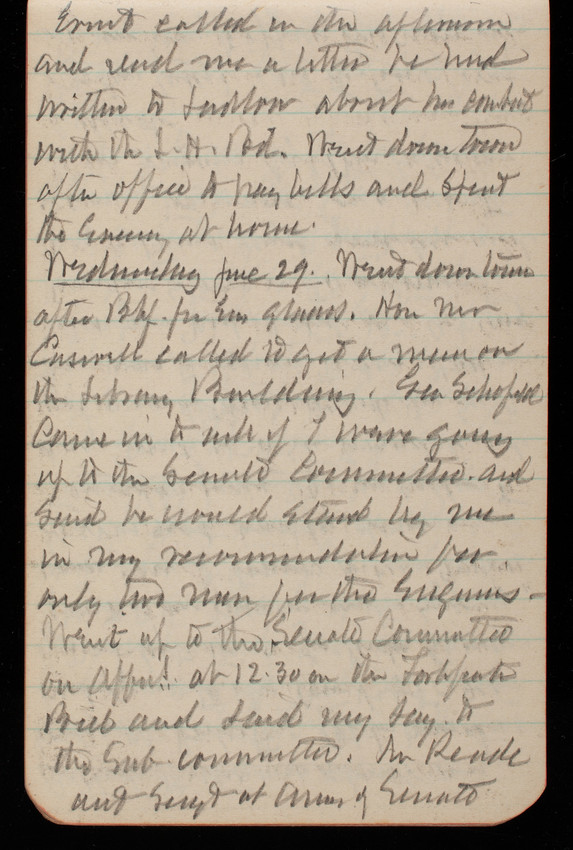 Ernst called in the afternoon
and read me a letter he had
written to Ludlow about his combat
with the L. H. Bd. Went down town
after office to pay bills and spent
the evening at home.
Wednesday June 29. Went down town
after Bkf. for Em glasses. Hon Mr
Caswell called to get a man on
the Library Building. Gen Schofield
Came in to ask if I were going
up to the Senate Committee and
said he would stand by me
in my recommendation for
only two men for the Engineers -
Went up to the Senate Committee
on Appn! at 12.30 on the Fortification
Bill and said my say to
the Sub committee. Mr Reade
and Sergt at Arms of Senate